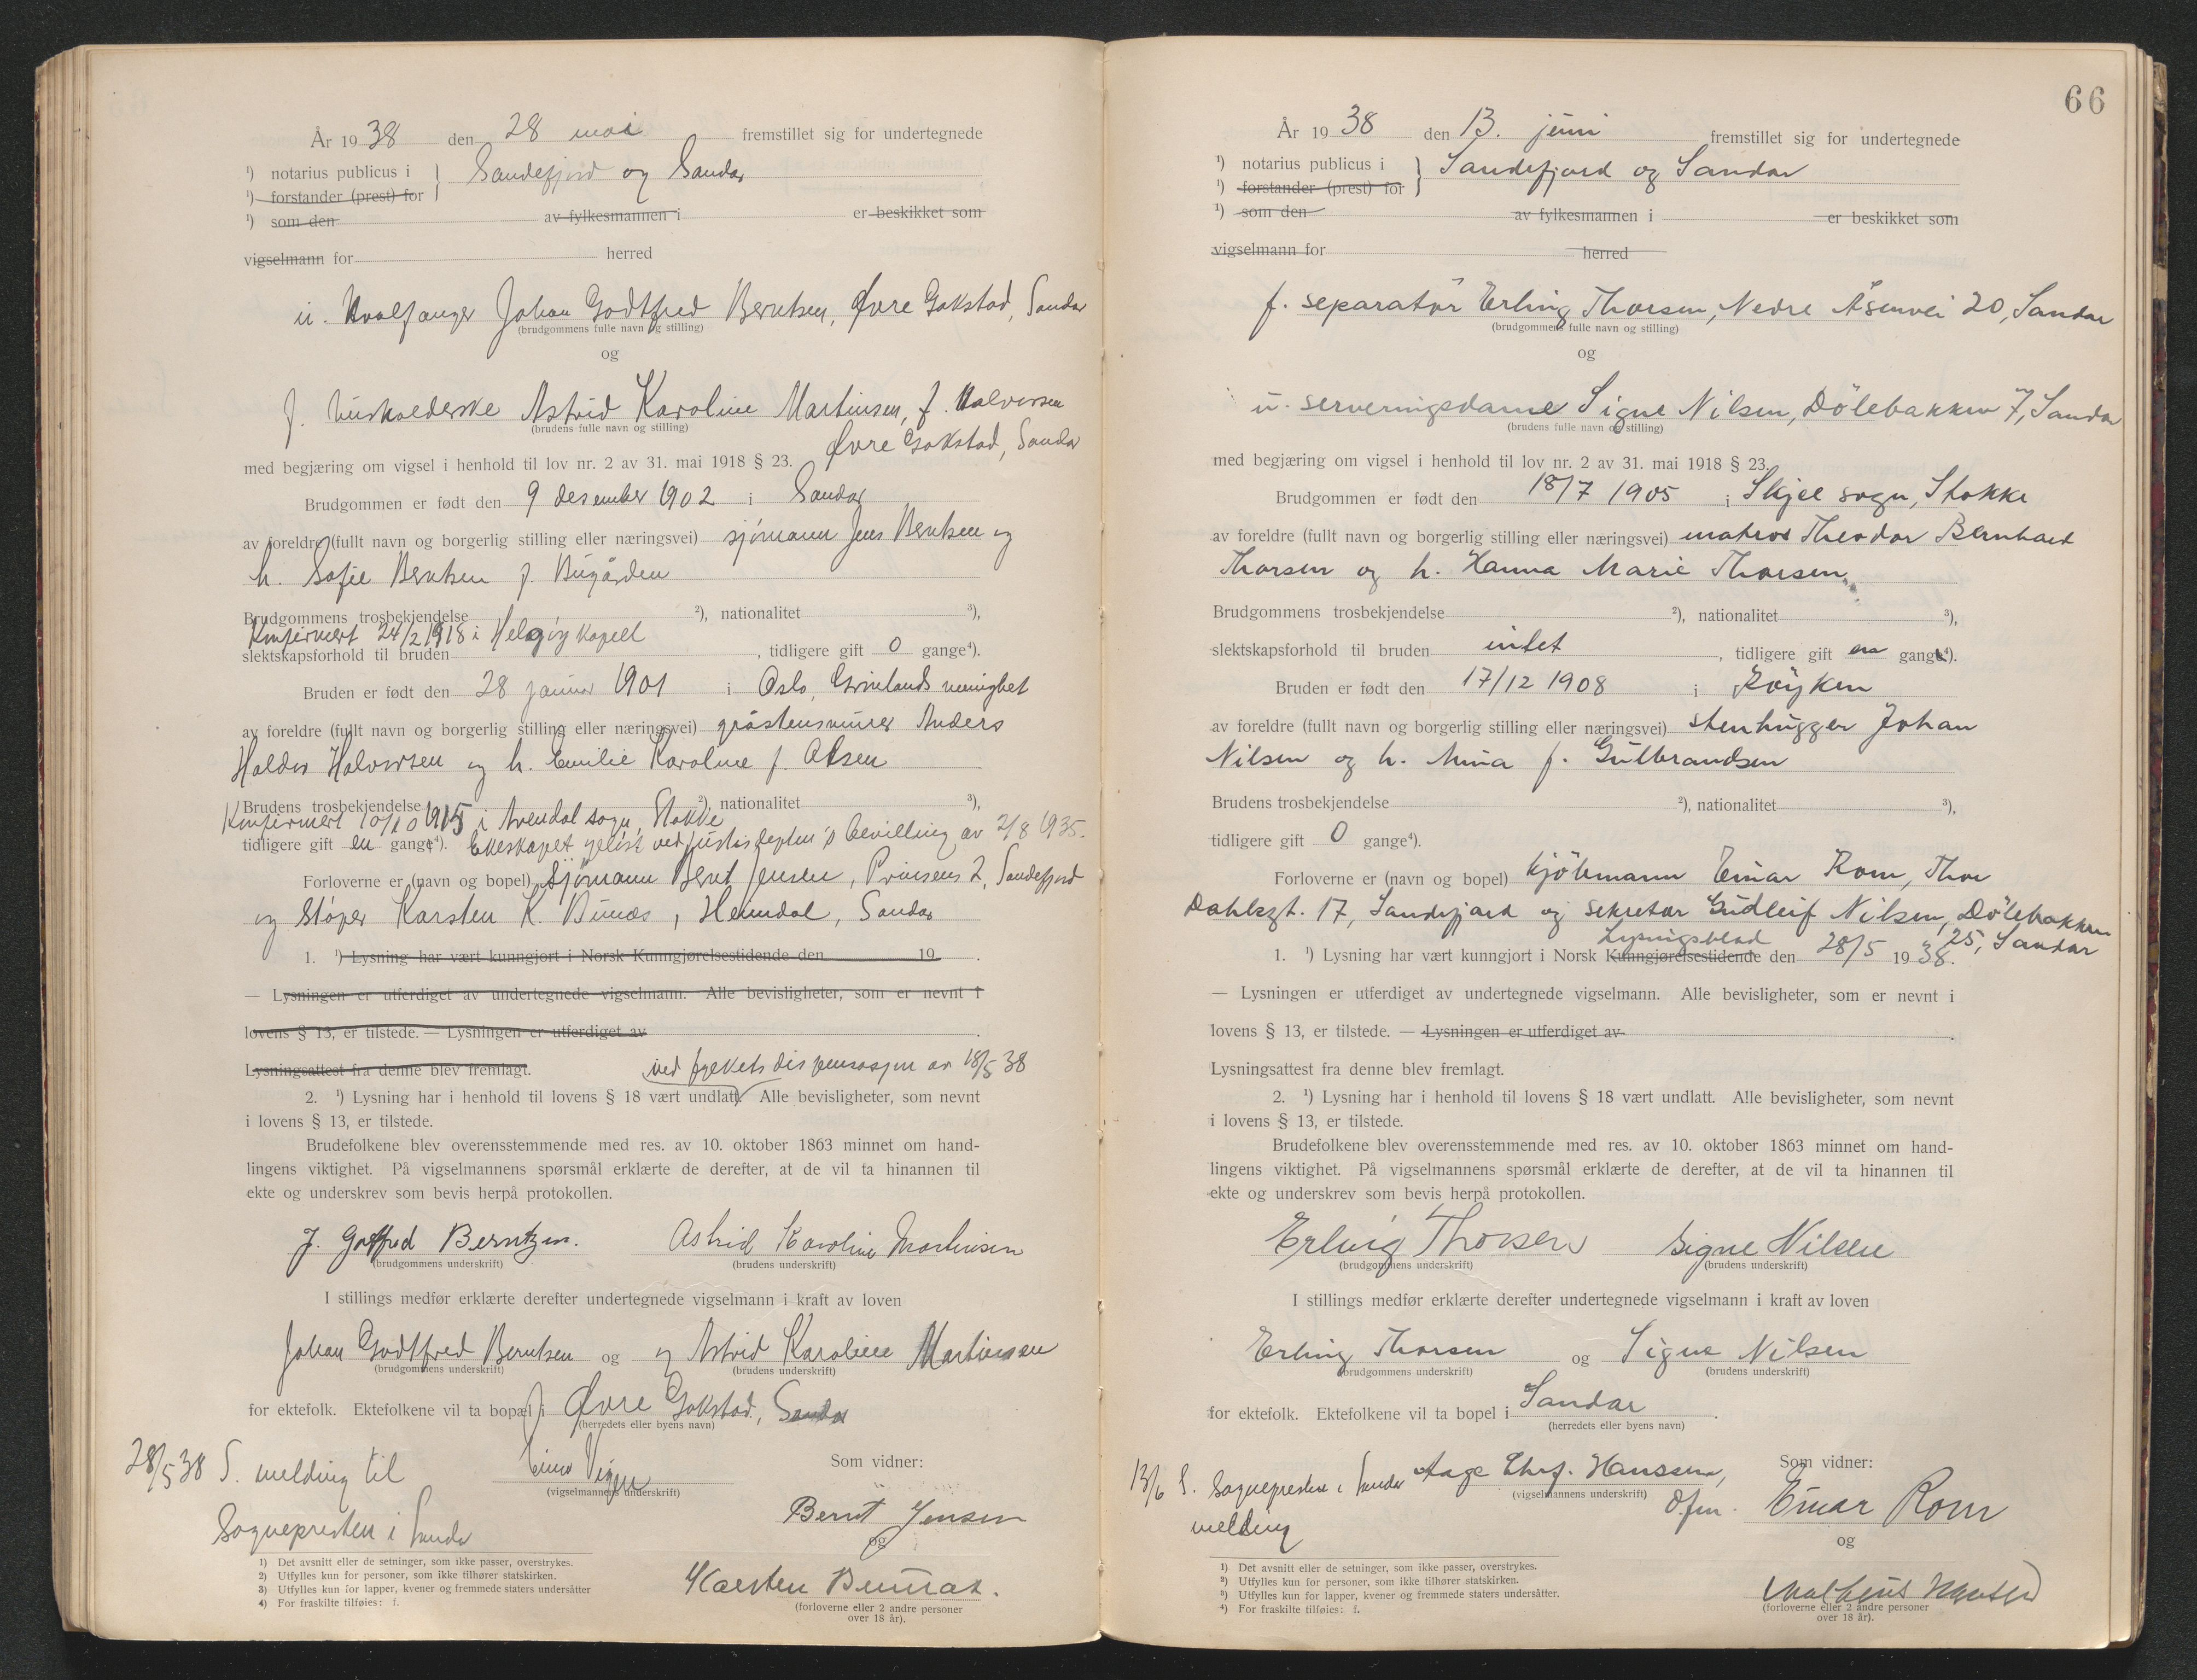 År 1938 den 28 mai fremstillet sig for undertegnede
¹) notarius publicus i } Sandefjord og Sandar
¹) forstander (prest) for
¹) som den av fylkesmannen i er beskikket som
vigselmann for herred
u. Hvalfanger Johan Godtfred Berntsen, Øvre Gokstad, Sandar
(brudgommens fulle navn og stilling)
og
f. husholderske Astrid Karoline Martinsen, f. Halvorsen
(brudens fulle navn og stilling)
Øvre Gokstad, Sandar
med begjæring om vigsel i henhold til lov nr. 2 av 31. mai 1918 § 23.
Brudgommen er født den 9 desember 1902 i Sandar
av foreldre (fullt navn og borgerlig stilling eller næringsvei) sjømann Jens Berntsen og
h. Sofie Berntsen f. Bugården
Brudgommens trosbekjendelse ²), nationalitet ³),
Konfirmert 24/2 1918 i Helgøy kapell
slektskapsforhold til bruden , tidligere gift 0 gange⁴).
Bruden er født den 28 januar 1901 i Oslo, Grønlands menighet
av foreldre (fullt navn og borgerlig stilling eller næringsvei) gråstensmurer Anders
Haldor Halvorsen og h. Emilie Karoline f. Olsen
Brudens trosbekjendelse ²), nationalitet ³),
Konfirmert 10/10 1915 i Arendal sogn, Stokke
tidligere gift en gang⁴). Ekteskapet opløst ved justisdeptm's bevilling av 2/8 1935.
Forloverne er (navn og bopel) Sjømann Bernt Jensen, Prinsens 2, Sandefjord
og Støper Karsten K. Bunæs, Heimdal, Sandar
1. ¹) Lysning har vært kunngjort i Norsk Kunngjørelsestidende den 19 .
— Lysningen er utferdiget av undertegnede vigselmann. Alle bevisligheter, som er nevnt i
lovens § 13, er tilstede. — Lysningen er utferdiget av .
Lysningsattest fra denne blev fremlagt. ved fylkets dispensasjon av 18/5 38
2. ¹) Lysning har i henhold til lovens § 18 vært undlatt. Alle bevisligheter, som nevnt
i lovens § 13, er tilstede.
Brudefolkene blev overensstemmende med res. av 10. oktober 1863 minnet om hand-
lingens viktighet. På vigselmannens spørsmål erklærte de derefter, at de vil ta hinannen til
ekte og underskrev som bevis herpå protokollen.
J. Gotfred Berntzen. Astrid Karoline Martinsen
(brudgommens underskrift) (brudens underskrift)
I stillings medfør erklærte derefter undertegnede vigselmann i kraft av loven
Johan Godtfred Berntsen og og Astrid Karoline Martinsen
(brudgommens underskrift) (brudens underskrift)
for ektefolk. Ektefolkene vil ta bopæl i Øvre Gokstad, Sandar
(herredets eller byens navn)
28/5 38 S. melding til
Sognepresten i Sandar
(vigselmannens underskrift)
Som vidner:
Bernt Jensen
og
Karsten Bunæs.
(forloverne eller 2 andre personer
over 18 år).
1) Det avsnitt eller de setninger, som ikke passer, overstrykes.
2) Utfylles kun for personer, som ikke tilhører statskirken.
3) Utfylles kun for lapper, kvener og fremmede staters undersåtter
4) For fraskilte tilføies: f.
66
År 1938 den 13. juni fremstillet sig for undertegnede
¹) notarius publicus i } Sandefjord og Sandar
¹) forstander (prest) for
¹) som den av fylkesmannen i er beskikket som
vigselmann for herred
f. separatør Erling Thorsen, Nedre Åsenvei 20, Sandar
(brudgommens fulle navn og stilling)
og
u. serveringsdame Signe Nilsen, Dölebakken 7, Sandar
(brudens fulle navn og stilling)
med begjæring om vigsel i henhold til lov nr. 2 av 31. mai 1918 § 23.
Brudgommen er født den 18/7 1905 i Skjee sogn, Stokke
av foreldre (fullt navn og borgerlig stilling eller næringsvei) matros Theodor Bernhard
Thorsen og h. Hanna Marie Thorsen
Brudgommens trosbekjendelse ²), nationalitet ³),
slektskapsforhold til bruden intet , tidligere gift en gang⁴).
Bruden er født den 17/12 1908 i Röyken
av foreldre (fullt navn og borgerlig stilling eller næringsvei) stenhugger Johan
Nilsen og h. Mina f. Gulbrandsen
Brudens trosbekjendelse ²), nationalitet ³),
tidligere gift 0 gange⁴).
Forloverne er (navn og bopel) kjöbmann Einar Rom, Thor
Dahlsgt. 17, Sandefjord og sekretær Gudleif Nilsen, Dölebakken
25, Sandar
Lysningsblad
1. ¹) Lysning har vært kunngjort i Norsk Kunngjørelsestidende den 28/5 1938.
— Lysningen er utferdiget av undertegnede vigselmann. Alle bevisligheter, som er nevnt i
lovens § 13, er tilstede. — Lysningen er utferdiget av .
Lysningsattest fra denne blev fremlagt.
2. ¹) Lysning har i henhold til lovens § 18 vært undlatt. Alle bevisligheter, som nevnt
i lovens § 13, er tilstede.
Brudefolkene blev overensstemmende med res. av 10. oktober 1863 minnet om hand-
lingens viktighet. På vigselmannens spørsmål erklærte de derefter, at de vil ta hinannen til
ekte og underskrev som bevis herpå protokollen.
Erling Thorsen Signe Nilsen
(brudgommens underskrift) (brudens underskrift)
I stillings medfør erklærte derefter undertegnede vigselmann i kraft av loven
Erling Thorsen og Signe Nilsen
(brudgommens underskrift) (brudens underskrift)
for ektefolk. Ektefolkene vil ta bopel i Sandar .
(herredets eller byens navn)
13/6 S. Sognepresten i Sandar
melding
Aage Chrf. Hanssen,
(vigselmannens underskrift)
Som vidner:
Einar Rom
og
(forloverne eller 2 andre personer
over 18 år).
1) Det avsnitt eller de setninger, som ikke passer, overstrykes.
2) Utfylles kun for personer, som ikke tilhører statskirken.
3) Utfylles kun for lapper, kvener og fremmede staters undersåtter.
4) For fraskilte tilføies: f.